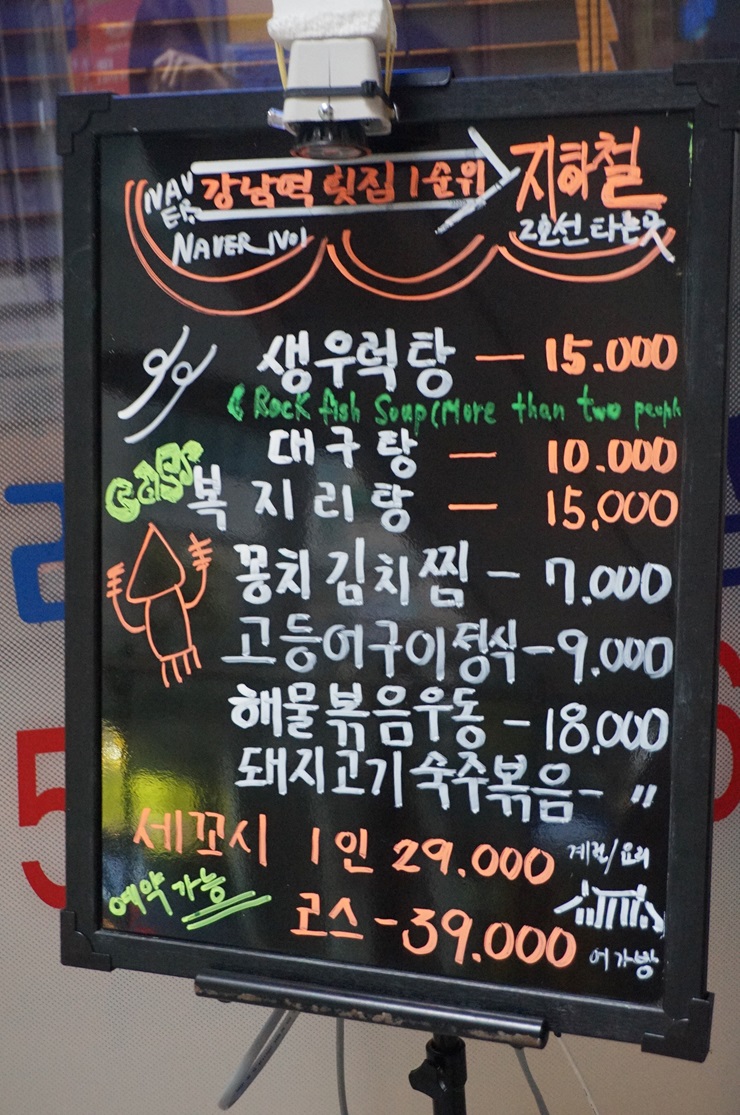 NAVER 강남역 맛집 1순위 지하철
NAVER 1위 2호선 타는곳
생우럭탕 — 15.000
Rock fish Soup(More than two peopl
대구탕 — 10.000
복지리탕 — 15,000
꽁치김치찜 - 7.000
고등어구이정식 - 9.000
해물볶음우동 - 18.000
돼지고기숙주볶음 - 〃
세꼬시 1인 29.000
예약가능
코스 - 39.000
어가방